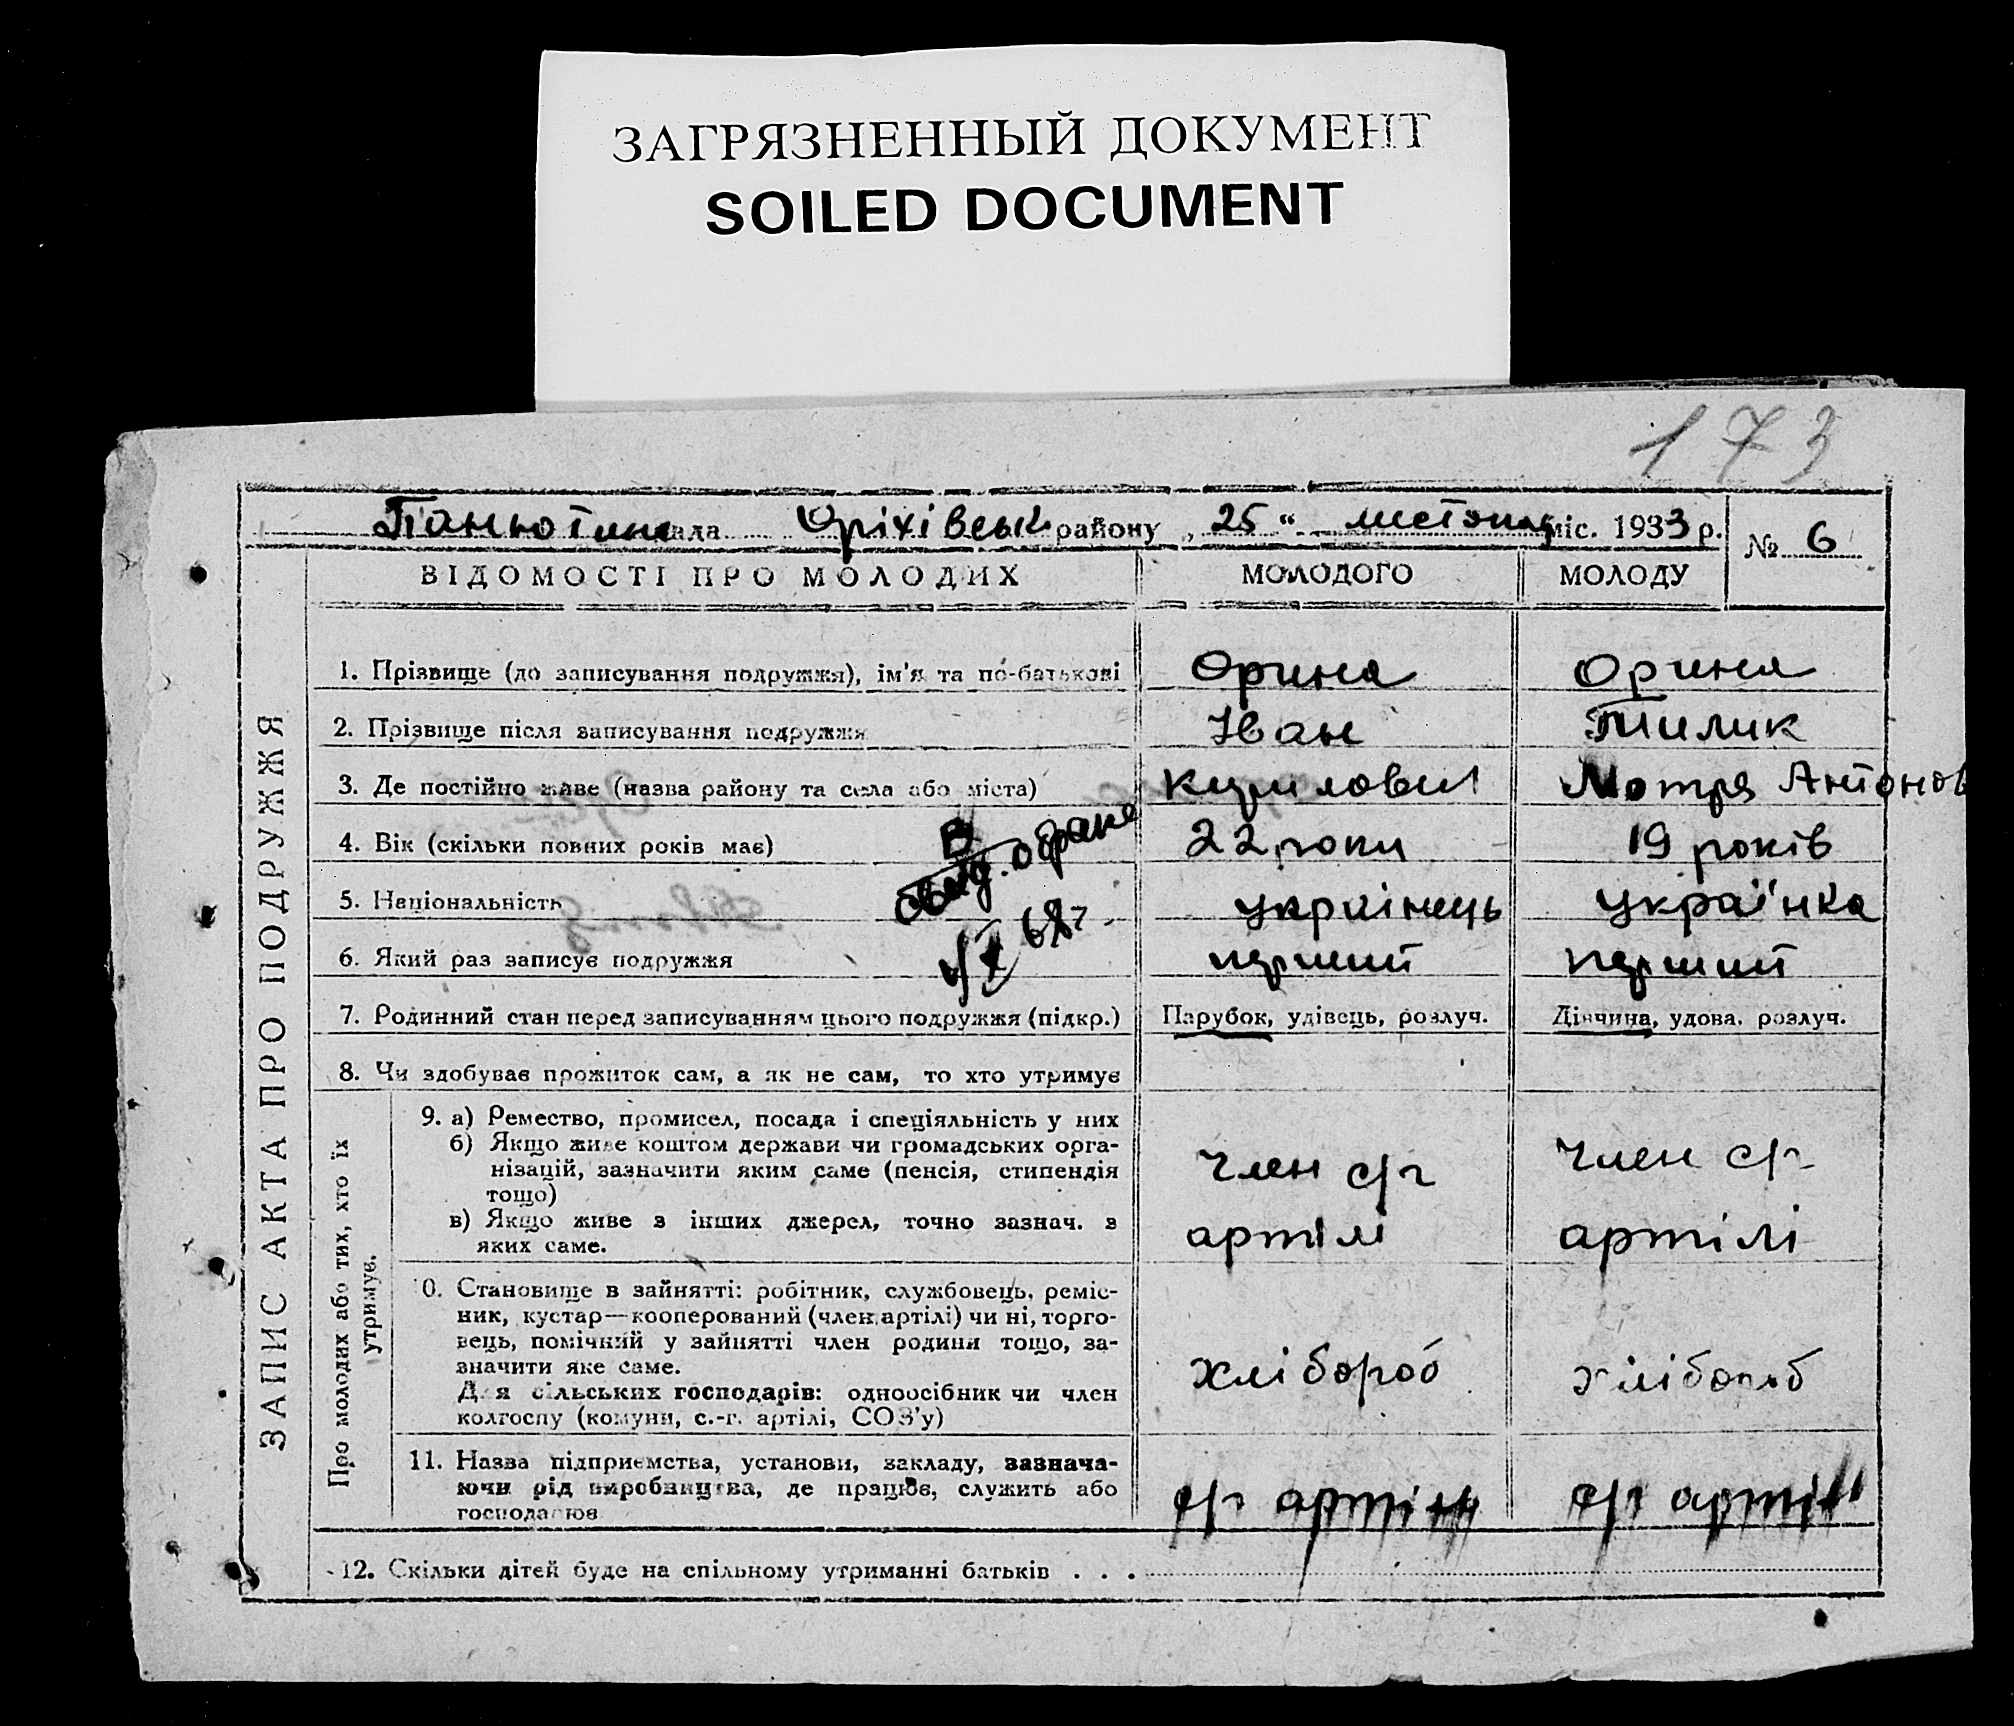 ЗАГРЯЗНЕННЫЙ ДОКУМЕНТ
SOILED DOCUMENT
173
рада Оріхівськ району „ 25 “ міс. 1933 р.
№ 6
ВІДОМОСТІ ПРО МОЛОДИХ МОЛОДОГО МОЛОДУ
ЗАПИС АКТА ПРО ПОДРУЖЖЯ
1. Прізвище (до записування подружжя), ім'я та по-батькові Орина Орина
2. Прізвище після записування подружжя Іван Тилик
3. Де постійно живе (назва району та села або міста) Кирилович Мотря Антонов
4. Вік (скільки повних років має) 22 роки 19 років
В
5. Національність українець українка
6. Який раз записує подружжя перший перший
7. Родинний стан перед записуванням цього подружжя (підкр.) Парубок, удівець, розлуч. Дівчина, удова, розлуч.
8. Чи здобуває прожиток сам, а як не сам, то хто утримує
Про молодих або тих, хто їх
утримує.
9. а) Ремество, промисел, посада і спеціяльність у них
б) Якщо живе коштом держави чи громадських орга-
нізацій, зазначити яким саме (пенсія, стипендія
тощо)
в) Якщо живе з інших джерел, точно зазнач. з
яких саме.
член с/г
артілі
член с/г
артілі
0. Становище в зайнятті: робітник, службовець, реміс-
ник, кустар—кооперований (член артілі) чи ні, торго-
вець, помічний у зайнятті член родини тощо, за-
значити яке саме.
Для сільських господарів: одноосібник чи член
колгоспу (комуни, с.-г. артілі, СОЗ'у)
хлібороб хлібороб
11. Назва підприємства, установи, закладу, зазнача-
ючи рід виробництва, де працює, служить або
господарює
с/г артілі с/г артілі
12. Скільки дітей буде на спільному утриманні батьків . . .